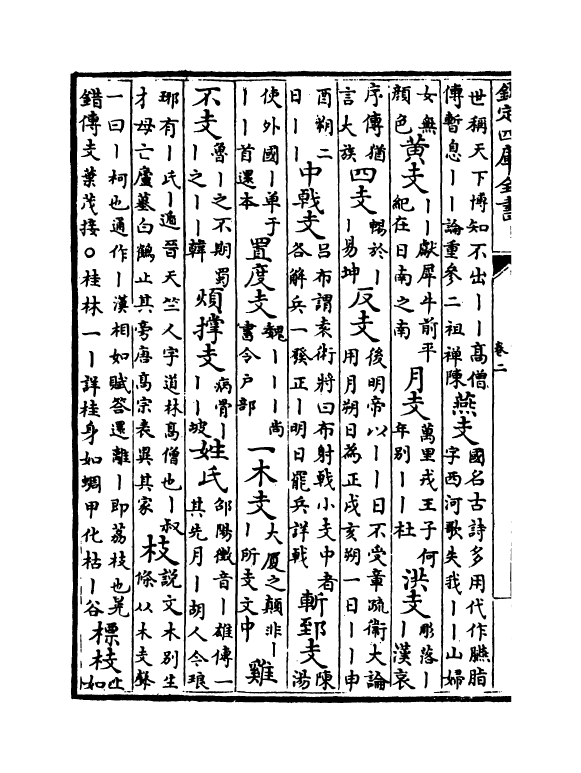 欽定四庫全書
卷二
世稱天下博知不出丨丨高僧
傳暫息丨丨論重參二祖禪陳
燕支
國名古詩多用代作臙脂
字西河歌失我丨丨山婦
女無
顔色
黄支
丨丨獻犀牛前平
紀在日南之南
月支
萬里戎王子何
年别丨丨杜
洪支
彫落丨
丨漢哀
序傳猶
言大族
四支
暢於丨
丨易坤
反支
後明帝以丨丨日不受章疏衛大論
用月朔日為正戌亥朔一日丨丨申
酉朔二
日丨丨
中戟支
吕布謂袁術將曰布射戟小支中者
各解兵一發正丨明日罷兵詳戟
斬郅支
陳
湯
使外國丨單于
丨丨首還本
置度支
魏丨丨丨尚
書令户部
一木支
大厦之顛非丨
丨所支文中
雞
不支
魯丨之不期蜀
丨之丨丨韓
煩撑支
病骨丨
丨丨坡
姓氏
郃陽徵音丨雄傳一
其先月丨胡人今琅
琊有丨氏丨遁晉天竺人字道林高僧也丨叔
才母亡廬墓白鶴止其旁唐高宗表異其家
枝
説文木别生
條从木支聲
一曰丨柯也通作丨漢相如賦答遝離丨即荔枝也晁
錯傳支葉茂接○桂林一丨詳桂身如蜩甲化枯丨谷
標枝
上
如